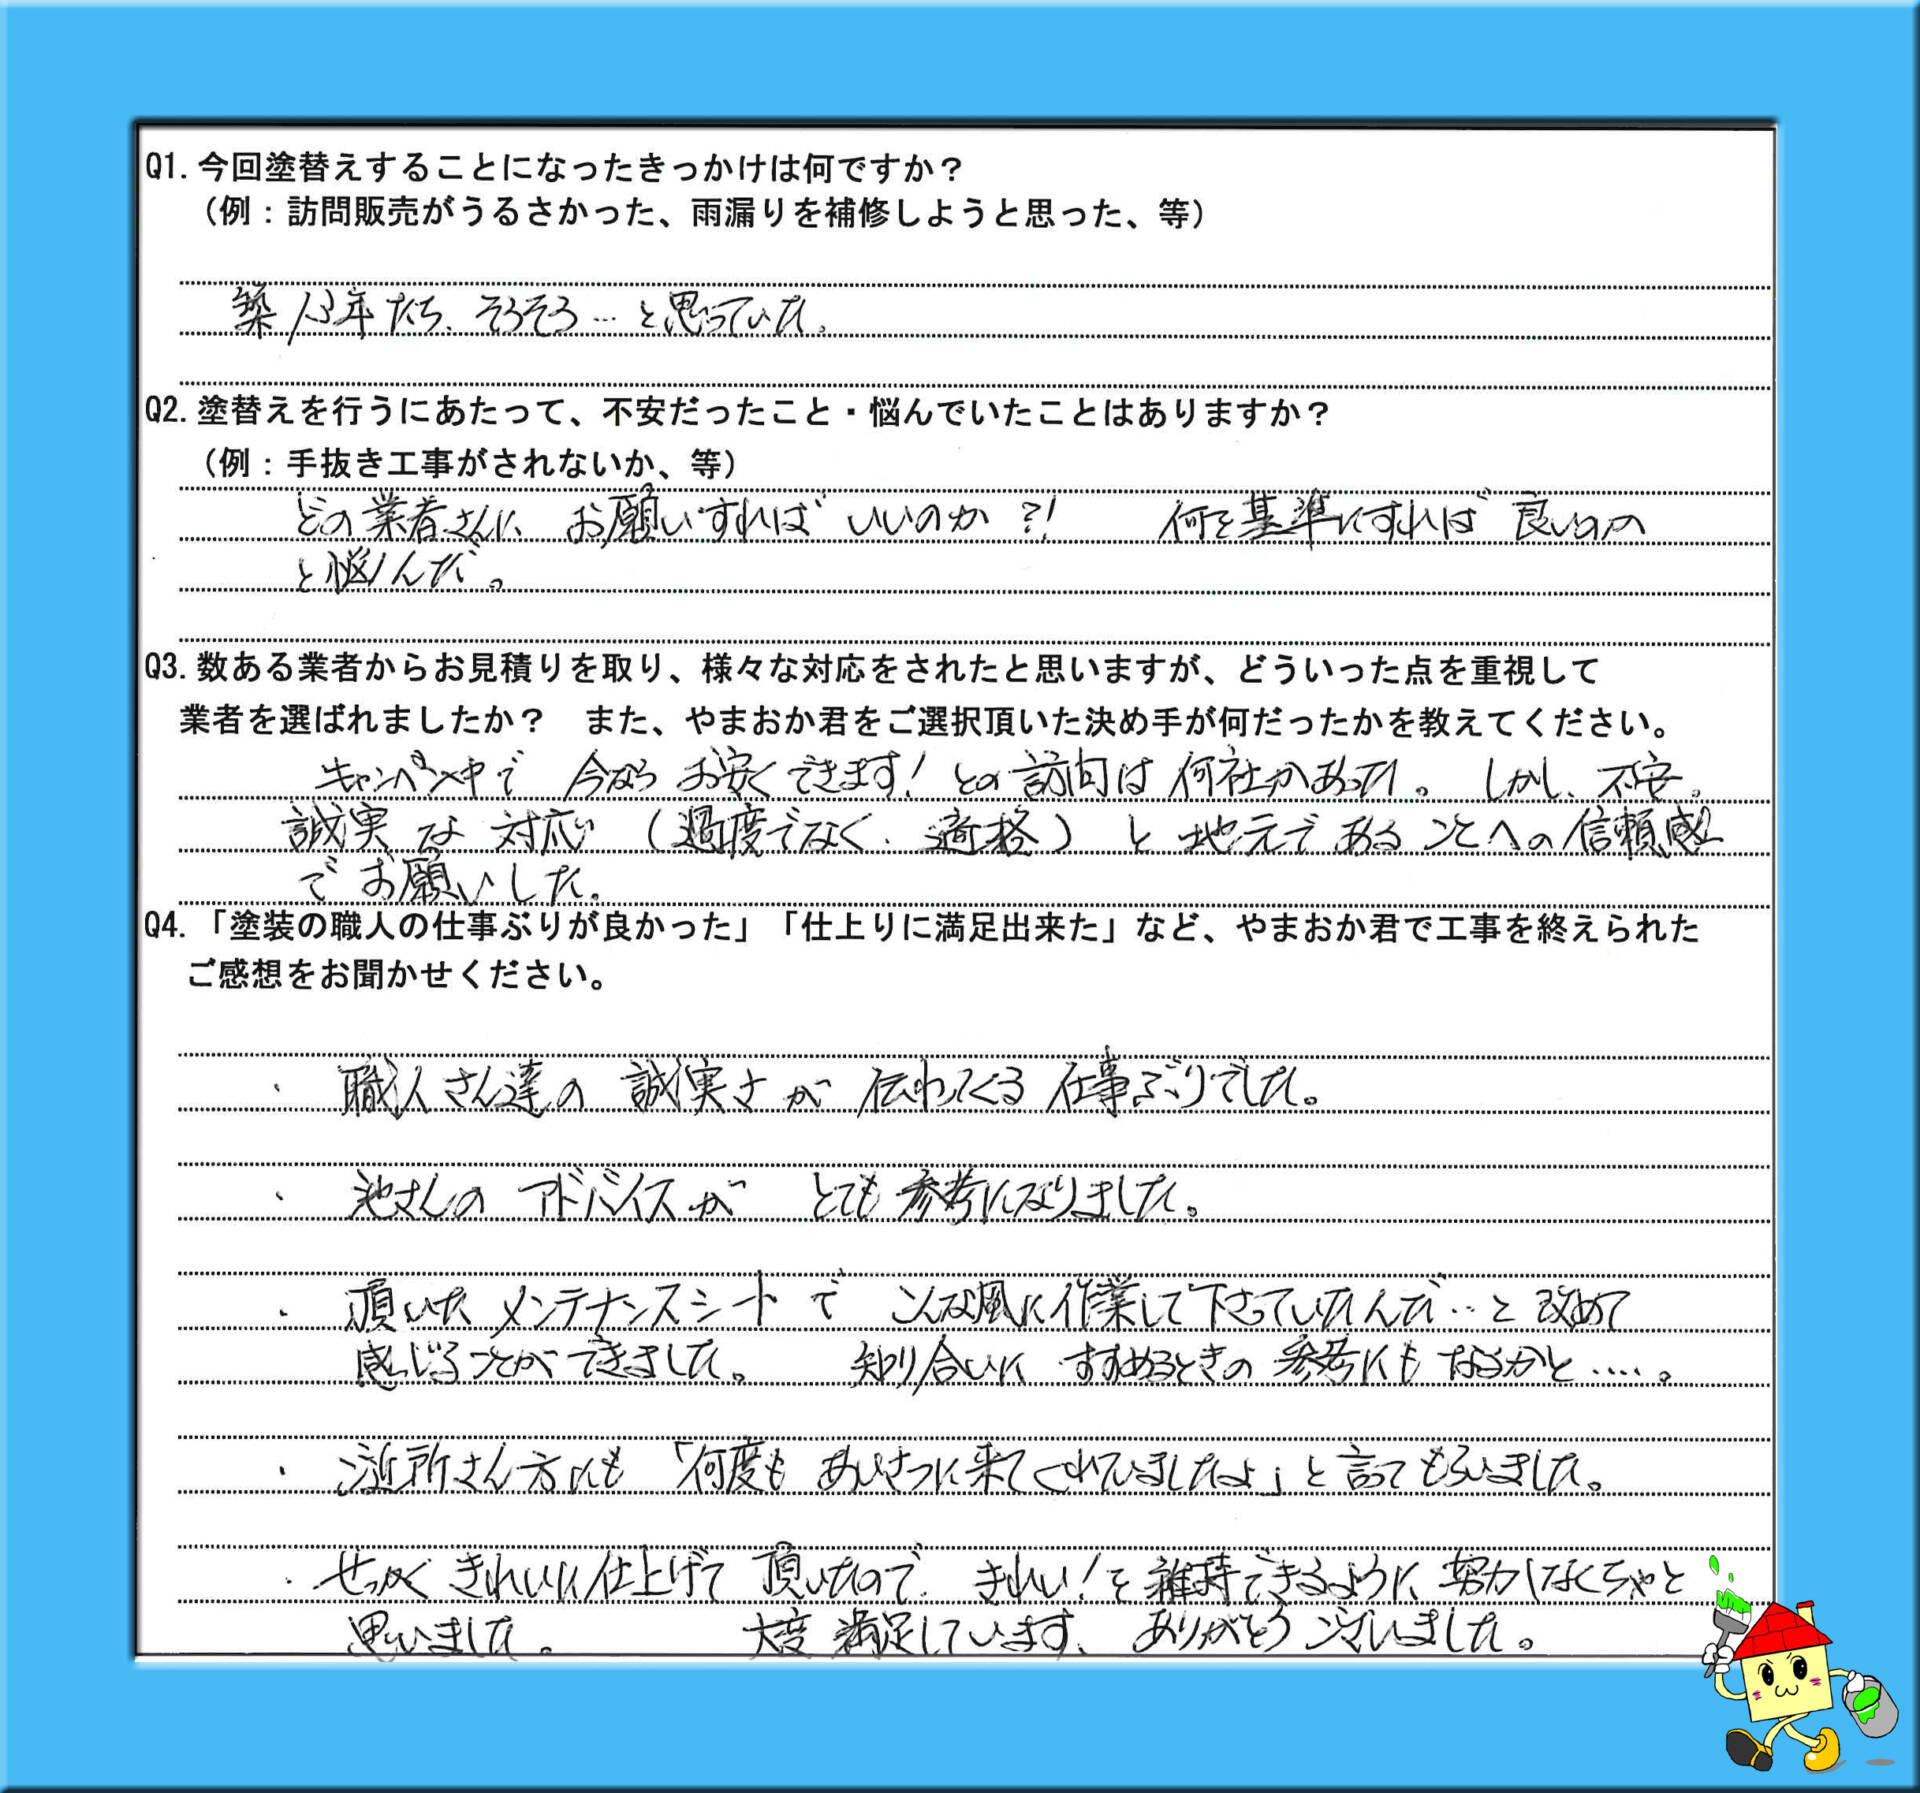 Q1. 今回塗替えすることになったきっかけは何ですか？
（例：訪問販売がうるさかった、雨漏りを補修しようと思った、等）
築13年たち、そろそろ…と思っていた。
Q2. 塗替えを行うにあたって、不安だったこと・悩んでいたことはありますか？
（例：手抜き工事がされないか、等）
どの業者さんに お願いすれば いいのか?! 何を基準にすれば 良いのか
と悩んだ。
Q3. 数ある業者からお見積りを取り、様々な対応をされたと思いますが、どういった点を重視して
業者を選ばれましたか？ また、やまおか君をご選択頂いた決め手が何だったかを教えてください。
キャンペーン中で 今なら お安くできます! との訪問は 何社かあった。 しかし、不安。
誠実な 対応 (過度でなく、適格) と 地元で あることへの信頼感
でお願いした。
Q4. 「塗装の職人の仕事ぶりが良かった」「仕上りに満足出来た」など、やまおか君で工事を終えられた
ご感想をお聞かせください。
・職人さん達の 誠実さが 伝わってくる 仕事ぶりでした。
・池さんの アドバイスが とても 参考になりました。
・頂いた メンテナンスシートで こんな風に作業して下さっていたんだ…と 改めて
感じることができました。 知り合いに すすめるときの 参考にも なるかと……。
・ご近所さん方にも 「何度も あいさつに来てくれていましたよ」と言って もらいました。
・せっかく きれいに仕上げて 頂いたので、きれい!を 維持できるように 努力しなくちゃと
思いました。 大変 満足しています、ありがとう ございました。